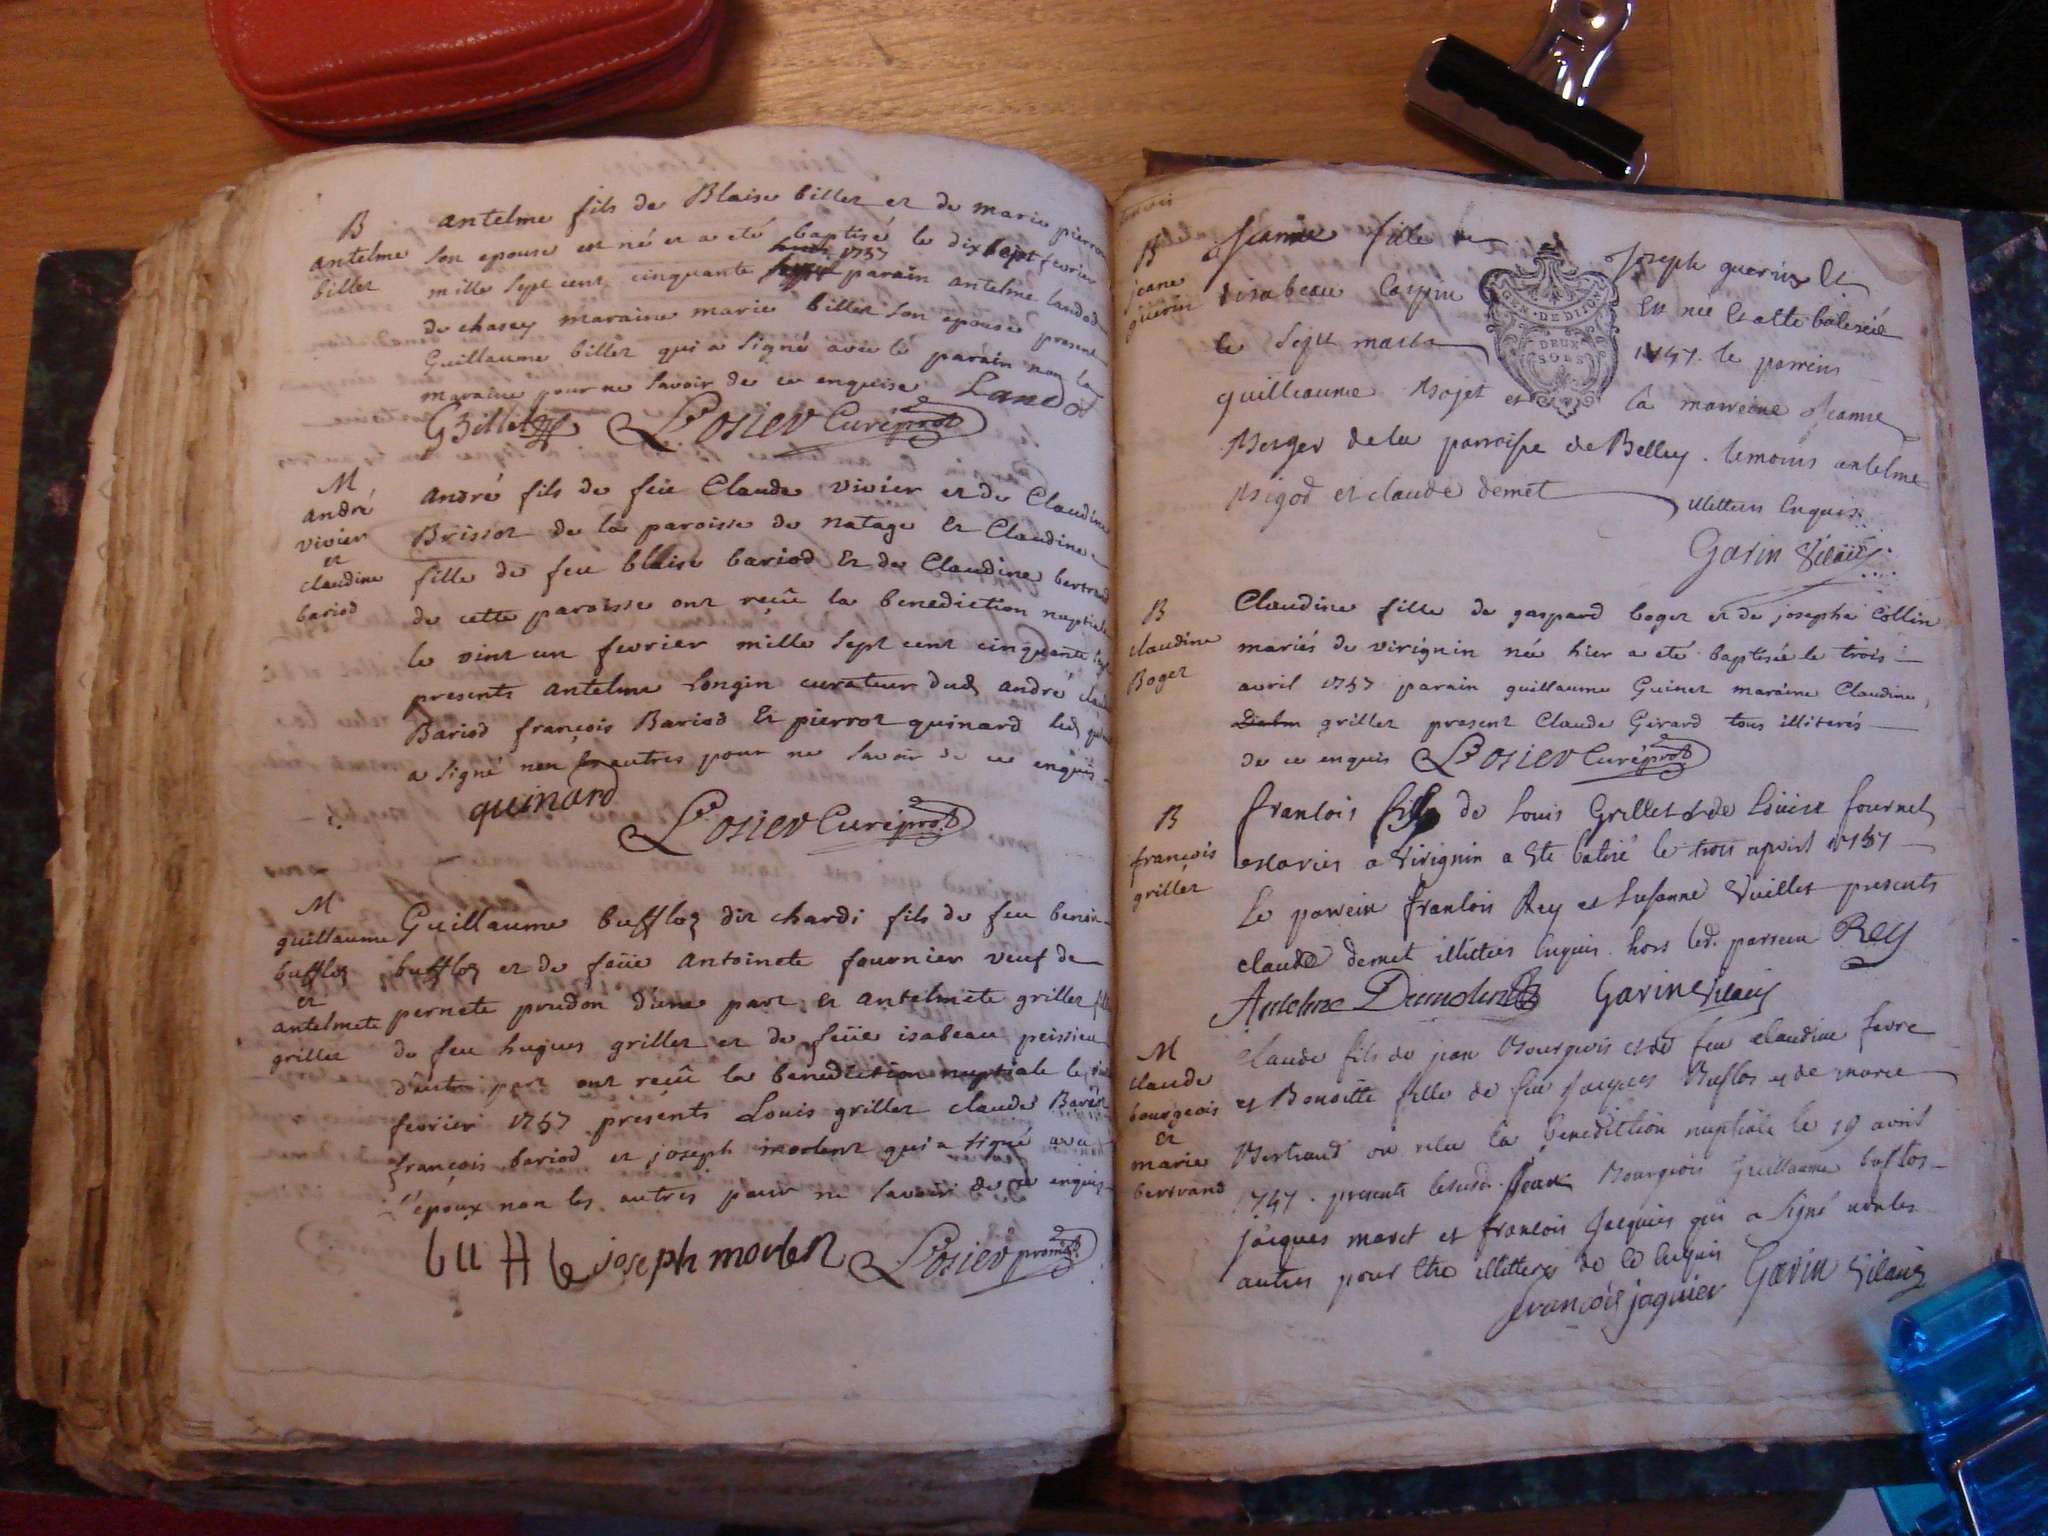 B
antelme
billet
antelme fils de Blaise billet et de marie pierron
son epouse est né et a eté baptisé le dix sept fevrier
mille sept cent cinquante 1757 parain antelme landoz
de chasey maraine marie billet son epouse present
Guillaume billet qui a signé avec le parain non la
maraine pour ne savoir de ce enquise Landoz
GBillet L'Osier Curé prot
M
andré
vivier
et
claudine
bariod
andré fils de feu Claude vivier et de Claudine
Brissot de la paroisse de natage et Claudine
fille de feu blaise bariod et de Claudine bertrand
de cette paroisse ont reçû la benediction nuptiale
le vint un fevrier mille sept cent cinquante sept
presents antelme Longin curateur dud andré, claude
Bariod françois Bariod et pierrot quinard led quinard
a signé non les autres pour ne savoir de ce enquis
quinard
L'Osier Curé prot
M
guillaume
buffloz
et
antelmete
grillet
Guillaume buffloz dit chardi fils de feu benoit
buffloz et de feüe antoinete fournier veuf de
pernete prudon d'une part et antelmete grillet fille
de feu hugues grillet et de feüe isabeau peissieu
d'autre part ont reçû la benediction nuptiale le
fevrier 1757 presents Louis grillet claude
françois bariod et joseph morlent qui a signé avec
l'époux non les autres pour ne savoir de ce enquis
joseph morlen L'Osier
B
jeane
guerin
Jeanne fille de Joseph guerin Et
disabeau est née Et a été batisée
GEN. DE DIJON
DEUX
SOLS
le sept mars 1757. le parrein
guilleaume et la marreine Jeanne
Berger de la parroisse de Belley. temoins antelme
Migod et claude demet illitteres Enquis
Gavin Vicaire
B
claudine
Boget
Claudine fille de gaspard boget et de josepha Collin
mariés de virignin née hier a eté baptisée le trois
avril 1757 parain guillaume Guinet maraine Claudine
grillet present Claude Girard tous illiterés
de ce enquis L'Osier Curé prot
B
françois
grillet
francois fils de Louis Grillet et de Loüise fournet
Maries a Virignin a Ete batisé le trois apvril 1757
Le parrein francois Rey et Susanne Vuillet presents
claude demet illitteres Enquis. hors led. parrein Rey
Antelme Gavin Vicaire
M
claude
bourgeois
et
marie
bertrand
claude fils de jean Bourgeois et de feu claudine favre
et Benoitte fille de feu jacques Buflos et de marie
Bertrand on reçu la benediction nuptiale le 19 avril
1757. presents lesusd. jean Bourgeois Guillaume buflos
jacques maret et francois Jacquier qui a signé nonles
autres pour Etre illitteres de ce Enquis
françois jaquier Gavin Vicaire